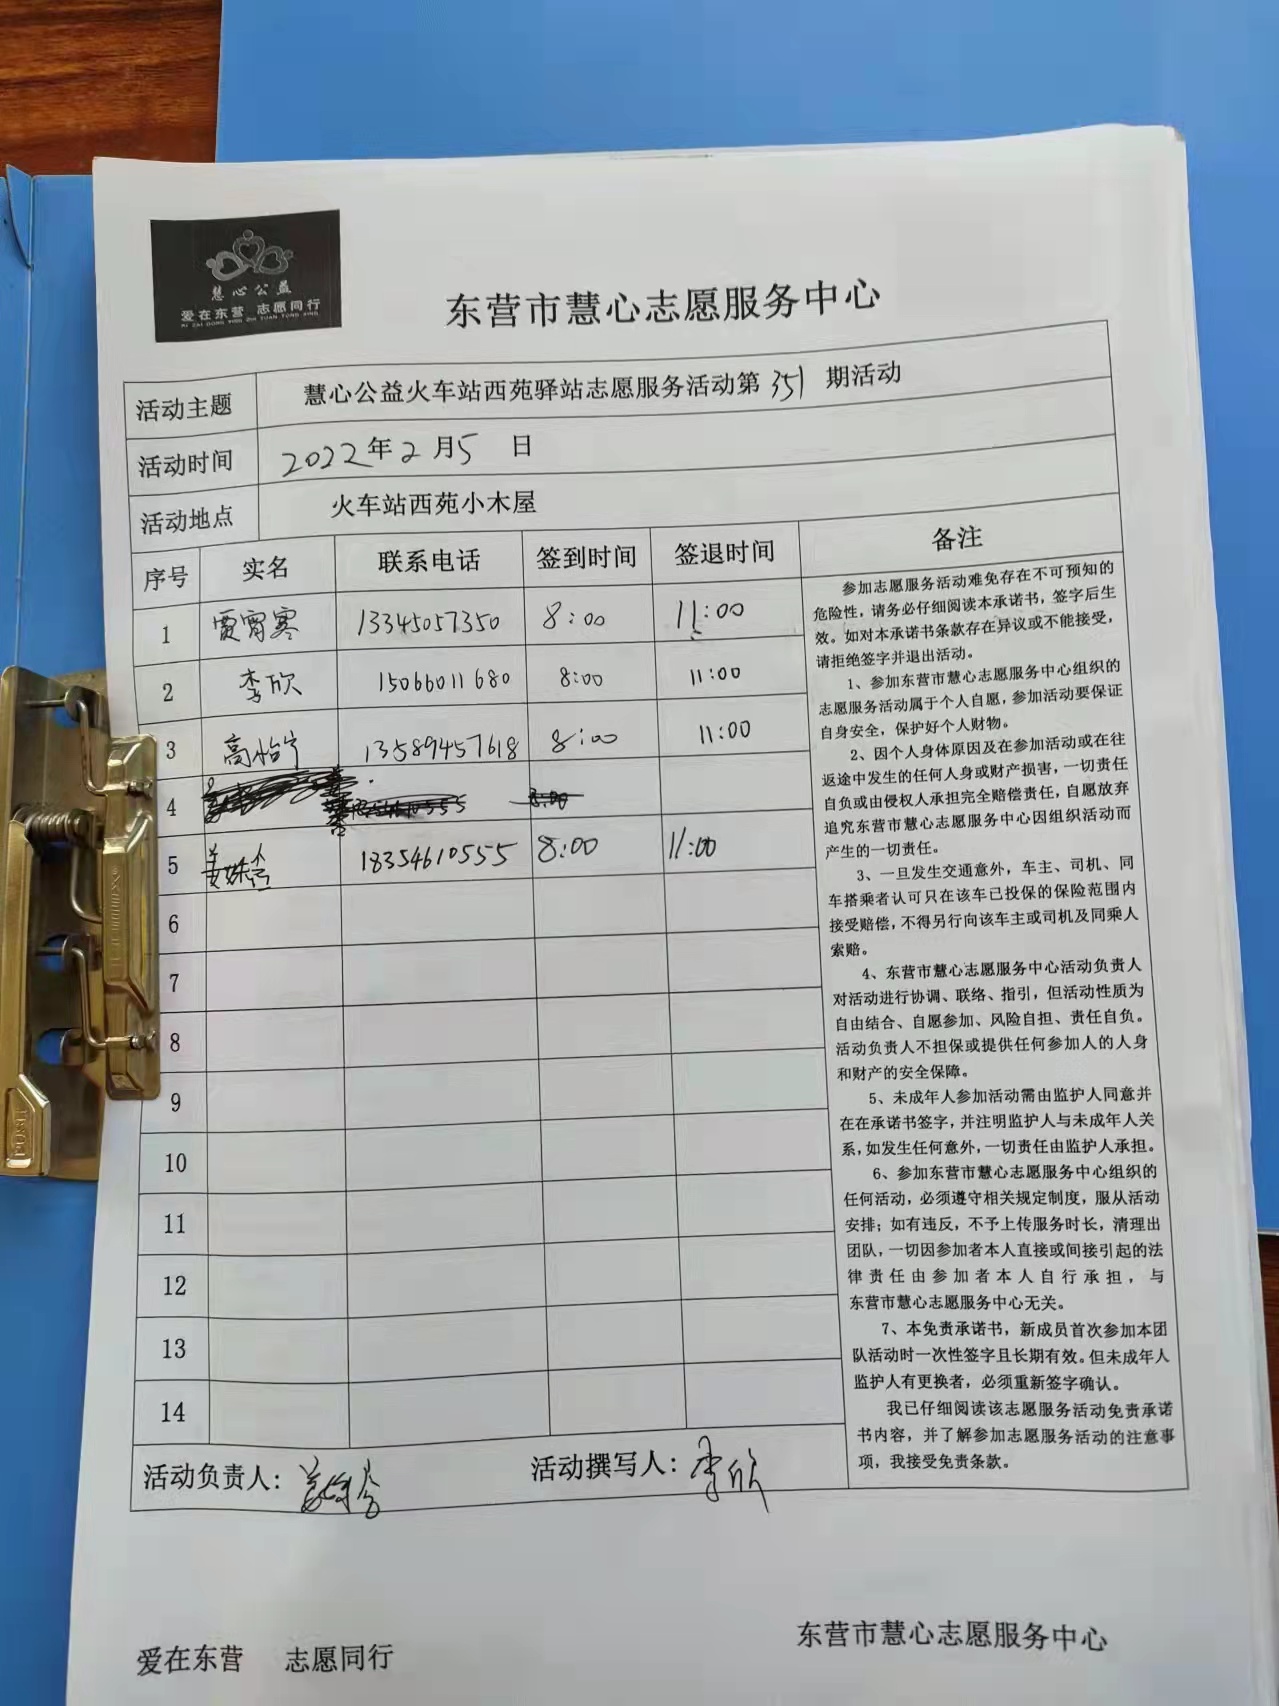 慧心公益
爱在东营 志愿同行
AI ZAI DONG YING ZHI YUAN TONG XING
东营市慧心志愿服务中心
活动主题 慧心公益火车站西苑驿站志愿服务活动第351期活动
活动时间 2022年2月5日
活动地点 火车站西苑小木屋
序号 实名 联系电话 签到时间 签退时间 备注
1 贾宵寒 13345057350 8:00 11:00
2 李欣 15066011680 8:00 11:00
3 高怡宁 13589457618 8:00 11:00
4 8:00
5 姜 18354610555 8:00 11:00
6
7
8
9
10
11
12
13
14
参加志愿服务活动难免存在不可预知的
危险性，请务必仔细阅读本承诺书，签字后生
效。如对本承诺书条款存在异议或不能接受，
请拒绝签字并退出活动。
1、参加东营市慧心志愿服务中心组织的
志愿服务活动属于个人自愿，参加活动要保证
自身安全，保护好个人财物。
2、因个人身体原因及在参加活动或在往
返途中发生的任何人身或财产损害，一切责任
自负或由侵权人承担完全赔偿责任，自愿放弃
追究东营市慧心志愿服务中心因组织活动而
产生的一切责任。
3、一旦发生交通意外，车主、司机、同
车搭乘者认可只在该车已投保的保险范围内
接受赔偿，不得另行向该车主或司机及同乘人
索赔。
4、东营市慧心志愿服务中心活动负责人
对活动进行协调、联络、指引，但活动性质为
自由结合、自愿参加、风险自担、责任自负。
活动负责人不担保或提供任何参加人的人身
和财产的安全保障。
5、未成年人参加活动需由监护人同意并
在在承诺书签字，并注明监护人与未成年人关
系，如发生任何意外，一切责任由监护人承担。
6、参加东营市慧心志愿服务中心组织的
任何活动，必须遵守相关规定制度，服从活动
安排；如有违反，不予上传服务时长，清理出
团队，一切因参加者本人直接或间接引起的法
律责任由参加者本人自行承担，与
东营市慧心志愿服务中心无关。
7、本免责承诺书，新成员首次参加本团
队活动时一次性签字且长期有效。但未成年人
监护人有更换者，必须重新签字确认。
我已仔细阅读该志愿服务活动免责承诺
书内容，并了解参加志愿服务活动的注意事
项，我接受免责条款。
活动负责人: 姜 活动撰写人: 李欣
东营市慧心志愿服务中心
爱在东营 志愿同行
PUSH